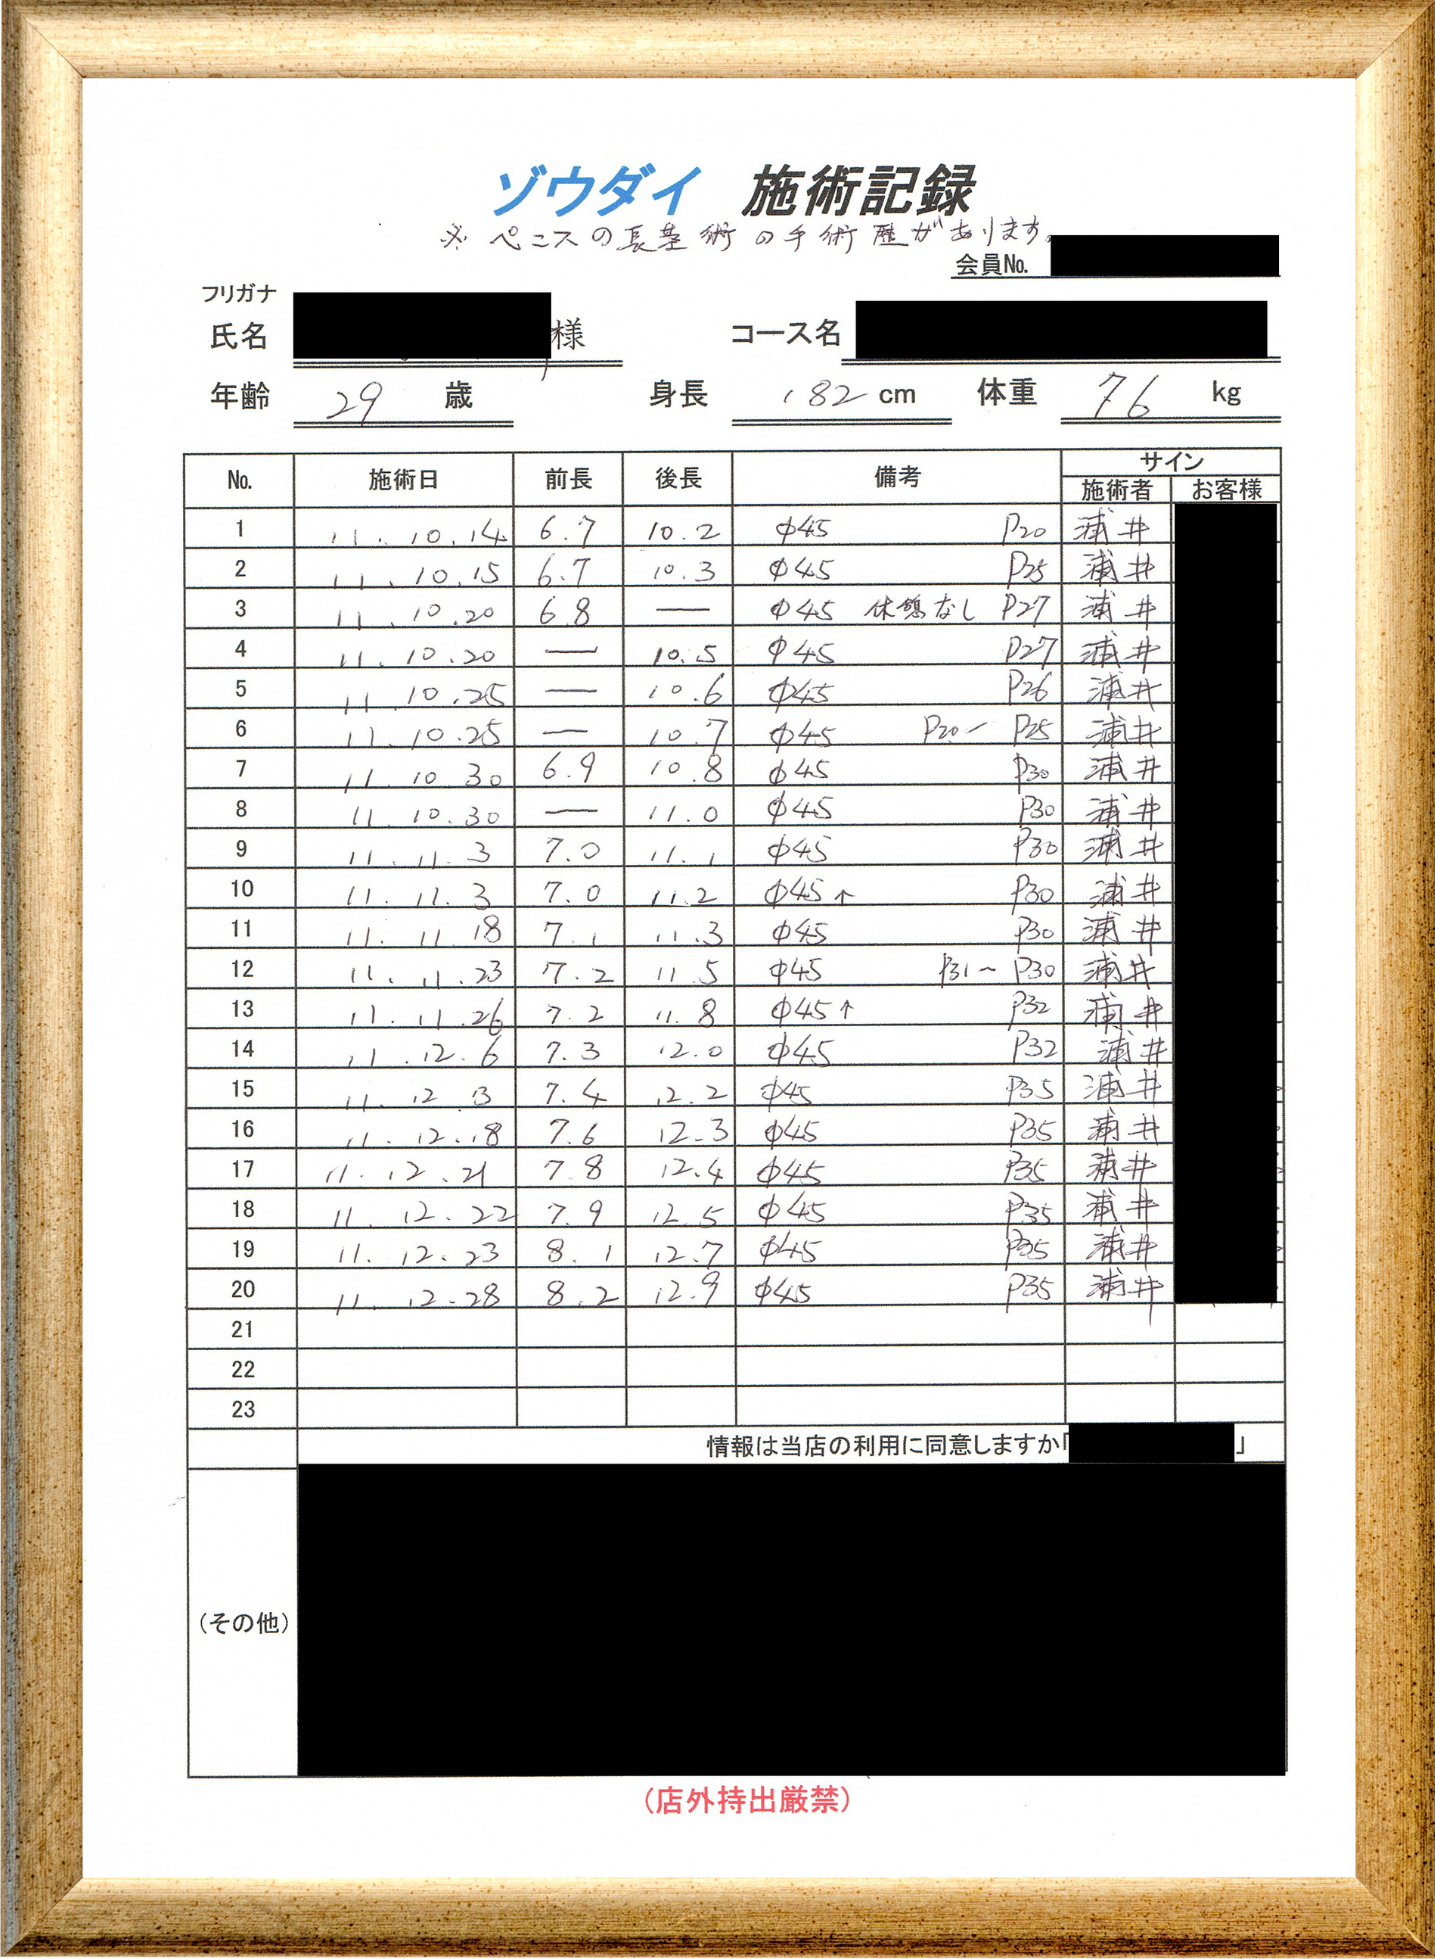 ゾウダイ 施術記録
※ ペニスの長茎術の手術歴があります。
会員No.
フリガナ
氏名 様 コース名
年齢 29 歳 身長 182 cm 体重 76 kg
No. 施術日 前長 後長 備考 サイン
施術者 お客様
1 11.10.14 6.7 10.2 φ45 P20 浦井
2 11.10.15 6.7 10.3 φ45 P25 浦井
3 11.10.20 6.8 — φ45 休憩なし P27 浦井
4 11.10.20 — 10.5 φ45 P27 浦井
5 11.10.25 — 10.6 φ45 P26 浦井
6 11.10.25 — 10.7 φ45 P20~P25 浦井
7 11.10.30 6.9 10.8 φ45 P30 浦井
8 11.10.30 — 11.0 φ45 P30 浦井
9 11.11.3 7.0 11.1 φ45 P30 浦井
10 11.11.3 7.0 11.2 φ45↑ P30 浦井
11 11.11.18 7.1 11.3 φ45 P30 浦井
12 11.11.23 7.2 11.5 φ45 P31~P30 浦井
13 11.11.26 7.2 11.8 φ45↑ P32 浦井
14 11.12.6 7.3 12.0 φ45 P32 浦井
15 11.12.13 7.4 12.2 φ45 P35 浦井
16 11.12.18 7.6 12.3 φ45 P35 浦井
17 11.12.21 7.8 12.4 φ45 P35 浦井
18 11.12.22 7.9 12.5 φ45 P35 浦井
19 11.12.23 8.1 12.7 φ45 P35 浦井
20 11.12.28 8.2 12.9 φ45 P35 浦井
21
22
23
情報は当店の利用に同意しますか「 」
(その他)
(店外持出厳禁)